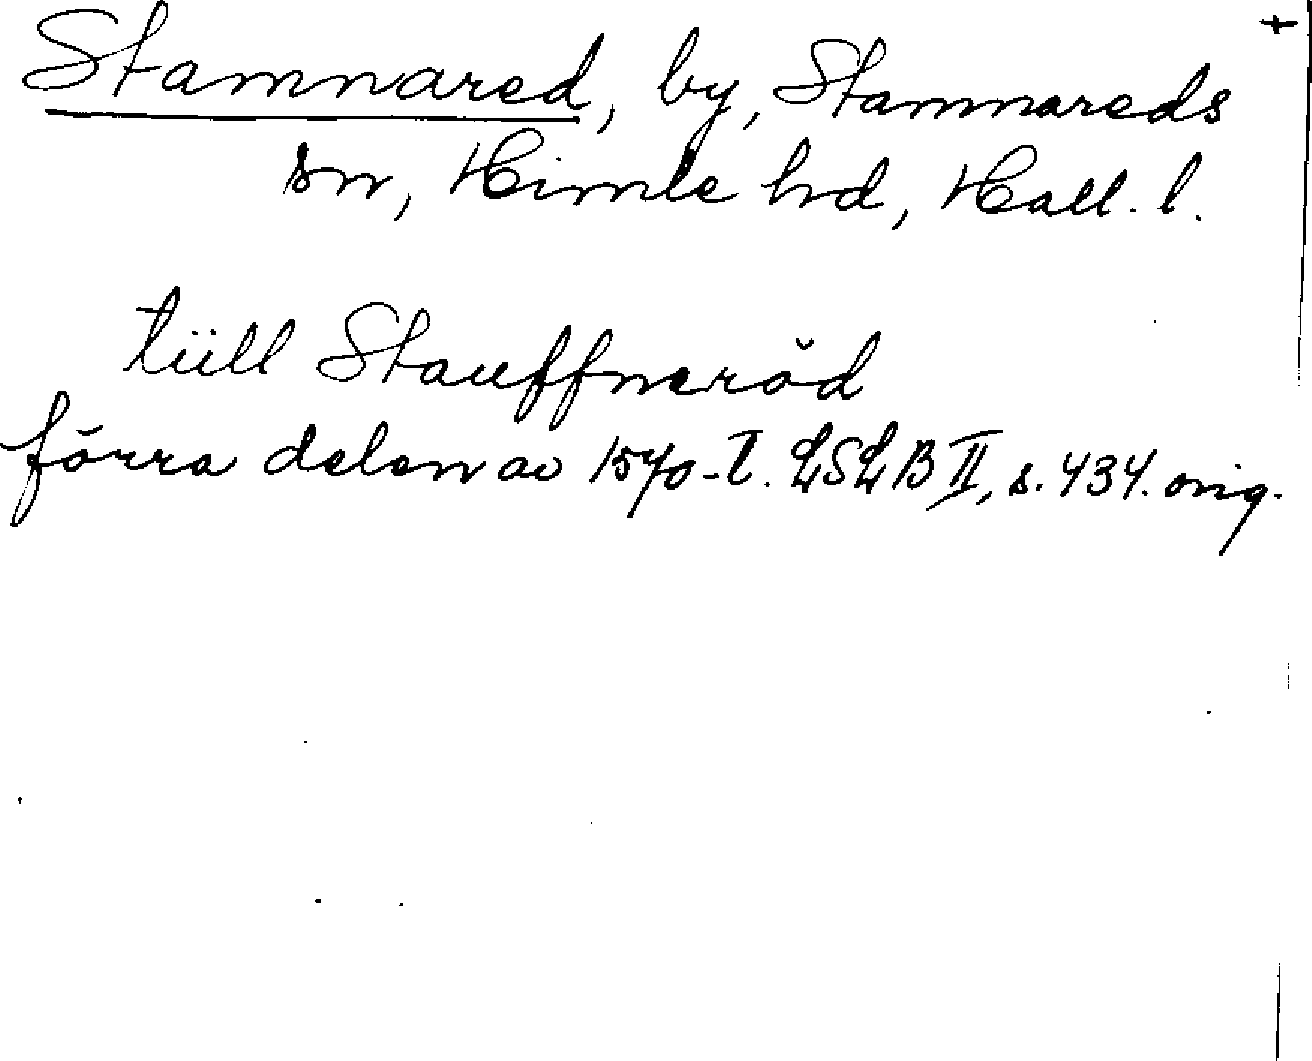 +
Stamnared, by, Stamnareds
sn, Himle hd, Hall. l.
tiill Stauffneröd
förra delen av 1570-t. LSLB II, s. 434. orig.